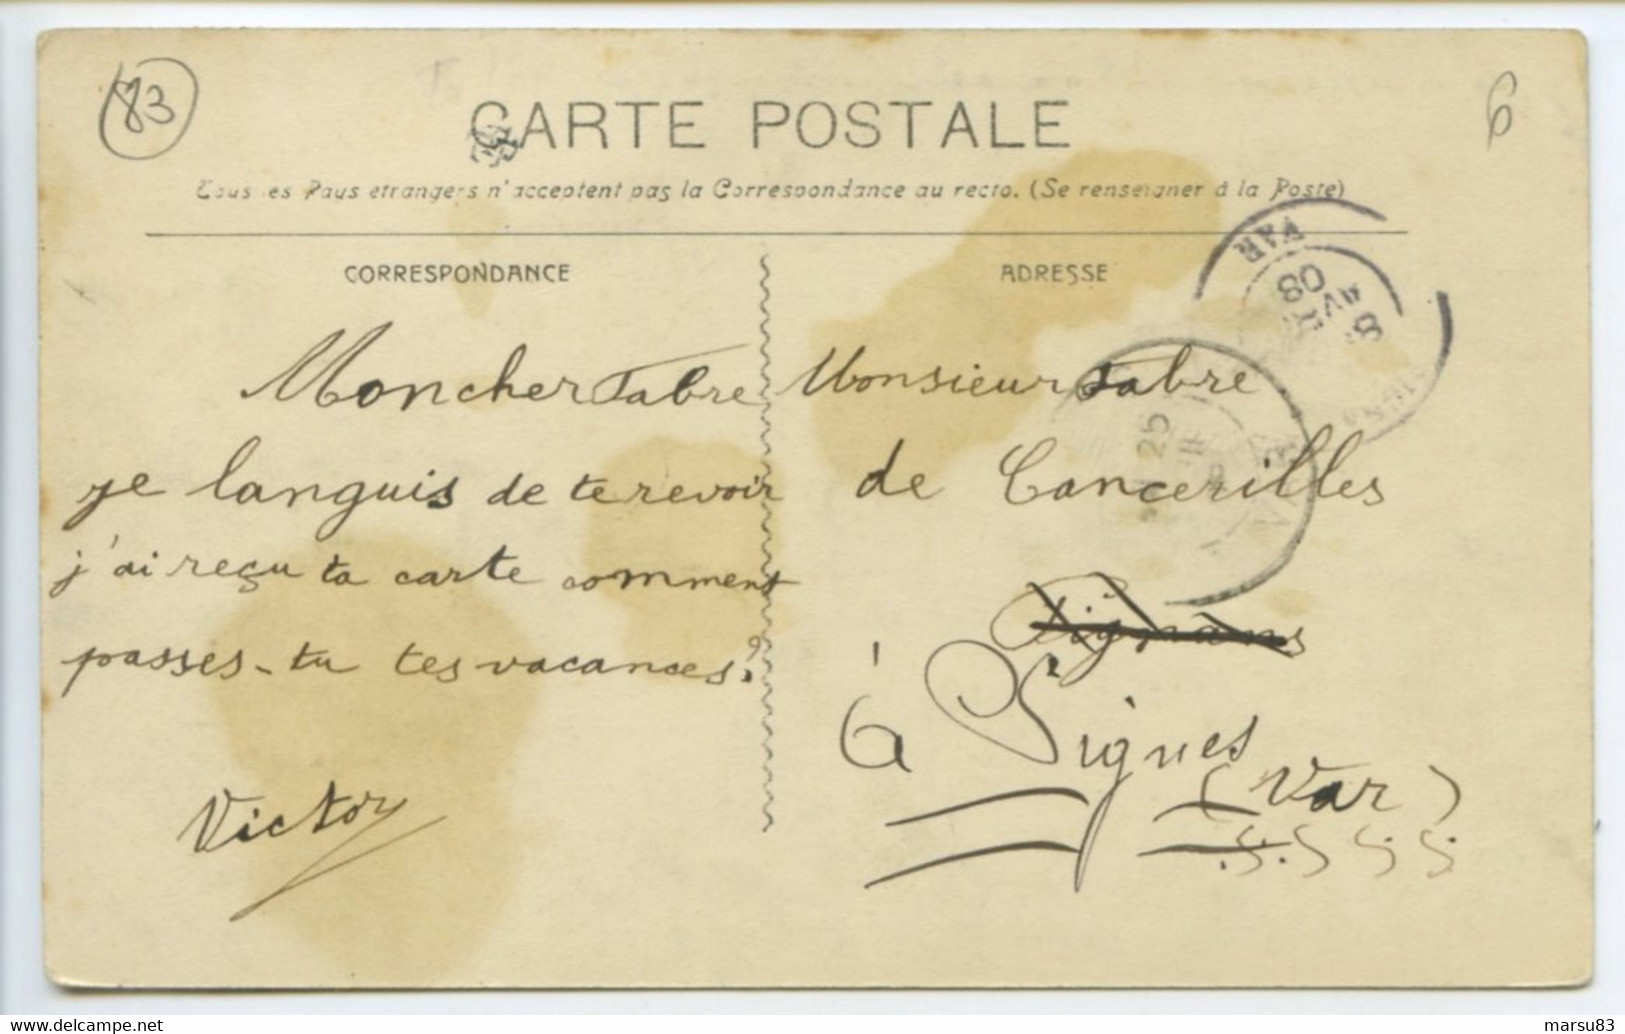 83
6
CARTE POSTALE
Tous les Pays etrangers n'acceptent pas la Correspondance au recto. (Se renseigner à la Poste)
CORRESPONDANCE
Moncher Fabre
je languis de te revoir
j'ai reçu ta carte comment
passes-tu tes vacances?
Victor
ADRESSE
Monsieur Fabre
de Cancerilles
Pignans
à Signes
(Var)
VAR
8
AV
08
25
marsu83